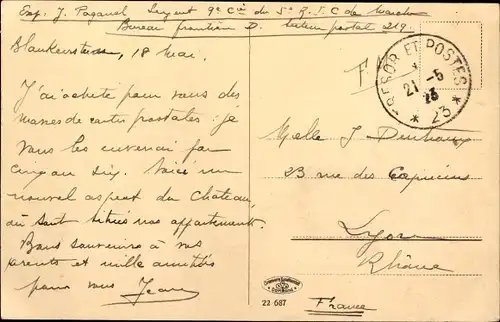 Exp. J. Paganel Sergent 9e Cie du 5e R.S.C de marche
Bureau frontière D. secteur postal 219.
Blankenstein, 18 mai.
J'ai acheté pour vous des
masses de cartes postales : je
vous les enverrai par
cinq ou six. Voici un
nouvel aspect du château,
où sont situés nos appartements.
Bons souvenirs à vos
parents et mille amitiés
pour vous Jean
F.
TRESOR ET POSTES
21-5
23
* 23 *
Melle J
23 rue des Capucins
Lyon
Rhône
France
22 687